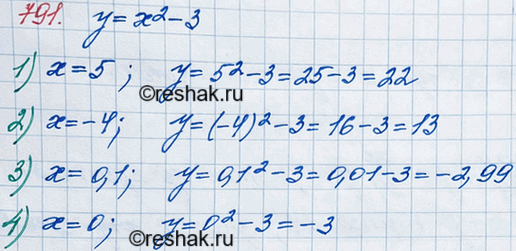 791. y = x² - 3
1) x = 5; y = 5² - 3 = 25 - 3 = 22
©reshak.ru
2) x = -4; y = (-4)² - 3 = 16 - 3 = 13
3) x = 0,1; y = 0,1² - 3 = 0,01 - 3 = -2,99
4) x = 0; y = 0² - 3 = -3
©reshak.ru